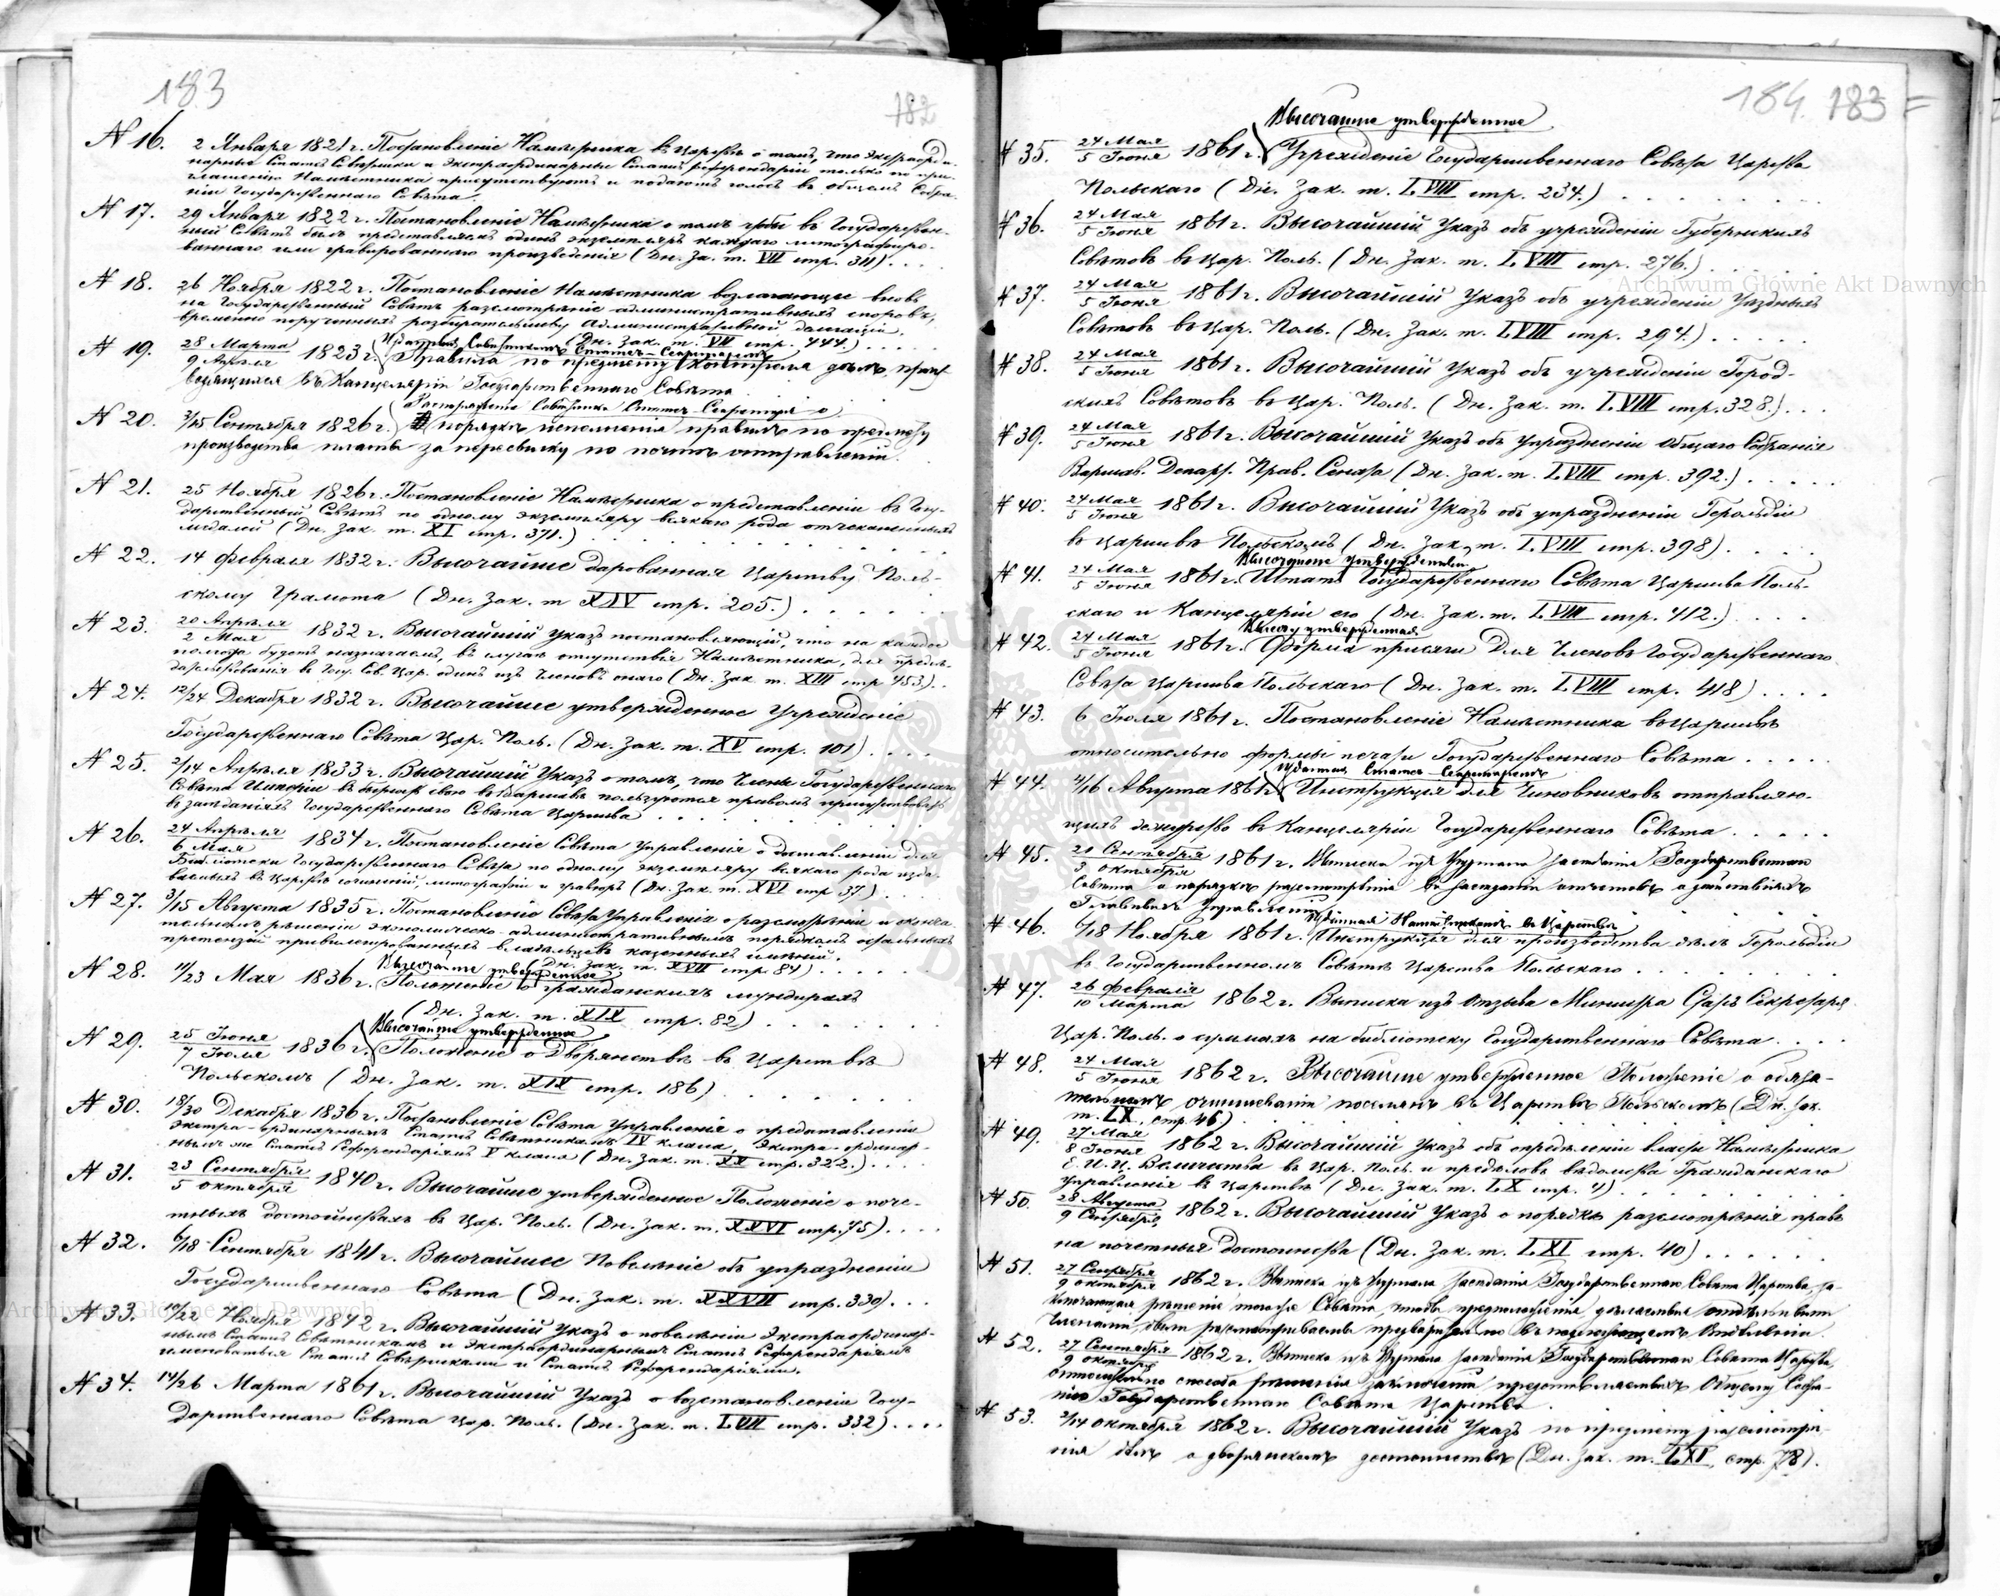 183
182
№ 16. 2 Января 1821 г. Постановленіе Намѣстника въ Царствѣ о томъ, что Экстраорди-
нарные Статсъ Совѣтники и Экстраординарные Статсъ Референдаріи только по при-
глашенію Намѣстника присутствуютъ и подаютъ голосъ въ общемъ Собра-
ніи Государственнаго Совѣта.
№ 17. 29 Января 1822 г. Постановленіе Намѣстника о томъ чтобы въ Государствен-
ный Совѣтъ былъ представляемъ одинъ экземпляръ каждаго литографиро-
ваннаго или гравированнаго произведенія (Дн. За. т. VII стр. 311) . . . .
№ 18. 26 Ноября 1822 г. Постановленіе Намѣстника возлагающее вновь
на Государственный Совѣтъ разсмотрѣніе административныхъ споровъ,
временно порученныхъ разбирательству Административной делегаціи
(Дн. Зак. т. VII стр. 444.) . . . .
Изданныя Совѣтникомъ Статсъ-Секретаремъ
№ 19. 28 Марта / 9 Апрѣля 1823 г. Правила по предмету контроля дѣлъ, произ-
водящихся въ Канцеляріи Государственнаго Совѣта
Распоряженіе Совѣтника Статсъ-Секретаря о
№ 20. 3/15 Сентября 1826 г. порядкѣ исполненія правилъ по предмету
производства платы за пересылку по почтѣ отправленій
№ 21. 25 Ноября 1826 г. Постановленіе Намѣстника о представленіи въ Госу-
дарственный Совѣтъ по одному экземпляру всякаго рода отчеканенныхъ
медалей (Дн. Зак. т. XI стр. 371.) . . . . .
№ 22. 14 Февраля 1832 г. Высочайше дарованная Царству Поль-
скому Грамота (Дн. Зак. т XIV стр. 205.) . . . . . .
№ 23. 20 Апрѣля / 2 Мая 1832 г. Высочайшій Указъ постановляющій, что на каждое
полгода будетъ назначаемъ, въ случаѣ отсутствія Намѣстника, для предсѣ-
дательствованія въ Госу. Сов. Цар. одинъ изъ Членовъ онаго (Дн. Зак т. XIII стр 453.) . .
№ 24. 12/24 Декабря 1832 г. Высочайше утвержденное Учрежденіе
Государственнаго Совѣта Цар. Поль. (Дн. Зак. т. XV стр. 101) . . . .
№ 25. 2/14 Апрѣля 1833 г. Высочайшій Указъ о томъ, что Члены Государственнаго
Совѣта Имперіи въ бытность свою въ Варшавѣ пользуются правомъ присутствовать
въ засѣданіяхъ Государственнаго Совѣта Царства . . . . .
№ 26. 24 Апрѣля / 6 Мая 1834 г. Постановленіе Совѣта Управленія о доставленіи для
Библіотеки Государственнаго Совѣта по одному экземпляру всякаго рода изда-
ваемыхъ въ Царствѣ сочиненій, литографій и гравюръ (Дн. Зак. т. XVI стр 37.) . .
№ 27. 3/15 Августа 1835 г. Постановленіе Совѣта Управленія о разсмотрѣніи и оконча-
тельномъ рѣшеніи экономическо-административнымъ порядкомъ остальныхъ
претензій привилегированныхъ владѣльцевъ казенныхъ имѣній.
(Дн. Зак. т. XVIII стр. 84) . . . . .
Высочайше утвержденное
№ 28. 11/23 Мая 1836 г. Положеніе о гражданскихъ мундирахъ
(Дн. Зак. т. XIX стр. 82) . . . . .
Высочайше утвержденное
№ 29. 25 Іюня / 7 Іюля 1836 г. Положеніе о Дворянствѣ въ Царствѣ
Польскомъ (Дн. Зак. т. XIX стр. 186) . . . . . . .
№ 30. 18/30 Декабря 1836 г. Постановленіе Совѣта Управленія о предоставленіи
Экстра-ординарнымъ Статсъ Совѣтникамъ IV класса, Экстра-ординар-
нымъ же Статсъ Референдаріямъ V класса (Дн. Зак. т. XX стр. 322.) . . .
№ 31. 23 Сентября / 5 Октября 1840 г. Высочайше утвержденное Положеніе о поче-
тныхъ достоинствахъ въ Цар. Поль. (Дн. Зак. т. XXVI стр. 75) . . . .
№ 32. 6/18 Сентября 1841 г. Высочайшее Повелѣніе объ упраздненіи
Государственнаго Совѣта (Дн. Зак. т. XXVII стр. 330) . . .
№ 33. 10/22 Ноября 1842 г. Высочайшій Указъ о повелѣніи Экстраординар-
нымъ Статсъ Совѣтникамъ и Экстраординарнымъ Статсъ Референдаріямъ
именоваться Статсъ Совѣтниками и Статсъ Референдаріями.
№ 34. 14/26 Марта 1861 г. Высочайшій Указъ о возстановленіи Госу-
дарственнаго Совѣта Цар. Поль. (Дн. Зак. т. LVII стр. 332) . . . .
184. 183
Высочайше утвержденное
№ 35. 24 Мая / 5 Іюня 1861 г. Учрежденіе Государственнаго Совѣта Царства
Польскаго (Дн. Зак. т. LVIII стр. 234.) . . . . . . . .
№ 36. 24 Мая / 5 Іюня 1861 г. Высочайшій Указъ объ учрежденіи Губернскихъ
Совѣтовъ въ Цар. Поль. (Дн. Зак. т. LVIII стр. 276.) . . . . .
№ 37. 24 Мая / 5 Іюня 1861 г. Высочайшій Указъ объ учрежденіи Уѣздныхъ
Совѣтовъ въ Цар. Поль. (Дн. Зак. т. LVIII стр. 294.) . . . . .
№ 38. 24 Мая / 5 Іюня 1861 г. Высочайшій Указъ объ учрежденіи Город-
скихъ Совѣтовъ въ Цар. Поль. (Дн. Зак. т. LVIII стр. 328.) . . .
№ 39. 24 Мая / 5 Іюня 1861 г. Высочайшій Указъ объ упраздненіи Общаго Собранія
Варшав. Департ. Прав. Сената (Дн. Зак. т. LVIII стр. 392.) . . . . .
№ 40. 24 Мая / 5 Іюня 1861 г. Высочайшій Указъ объ упраздненіи Герольдіи
въ Царствѣ Польскомъ (Дн. Зак. т. LVIII стр. 398) . . . .
Высочайше утвержденный
№ 41. 24 Мая / 5 Іюня 1861 г. Штатъ Государственнаго Совѣта Царства Поль-
скаго и Канцеляріи его (Дн. Зак. т. LVIII стр. 412.) . . . .
Высоч утвержденная
№ 42. 24 Мая / 5 Іюня 1861 г. Форма присяги для Членовъ Государственнаго
Совѣта Царства Польскаго (Дн. Зак. т. LVIII стр. 418) . . . .
№ 43. 6 Іюля 1861 г. Постановленіе Намѣстника въ Царствѣ
относительно формы печати Государственнаго Совѣта . . . . .
Изданная Статсъ-Секретаремъ
№ 44. 4/16 Августа 1861 г. Инструкція для Чиновниковъ отправляю-
щихъ дежурство въ Канцеляріи Государственнаго Совѣта . . . . .
№ 45. 21 Сентября / 3 Октября 1861 г. Выписка изъ Журнала засѣданія Государственнаго
Совѣта о порядкѣ разсмотрѣнія въ засѣданіи отчетовъ о дѣйствіяхъ
Главныхъ Управленій
Изданная Намѣстникомъ въ Царствѣ
№ 46. 6/18 Ноября 1861 г. Инструкція для производства дѣлъ Герольдіи
въ Государственномъ Совѣтѣ Царства Польскаго . . . . .
№ 47. 26 Февраля / 10 Марта 1862 г. Выписка изъ Отзыва Министра Статсъ Секретаря
Цар. Поль. о суммахъ на библіотеку Государственнаго Совѣта . . . .
№ 48. 24 Мая / 5 Іюня 1862 г. Высочайше утвержденное Положеніе о обяза-
тельномъ очиншеваніи поселянъ въ Царствѣ Польскомъ (Дн. Зак.
т. LX, стр. 46) . . . . .
№ 49. 27 Мая / 8 Іюня 1862 г. Высочайшій Указъ объ опредѣленіи власти Намѣстника
Е. И. Ц. Величества въ Цар. Поль. и предѣловъ вѣдомства Гражданскаго
Управленія въ Царствѣ (Дн. Зак. т. LX стр. 4) . . . . .
№ 50. 28 Августа / 9 Сентября 1862 г. Высочайшій Указъ о порядкѣ разсмотрѣнія правъ
на почетныя достоинства (Дн. Зак. т. LXI стр. 40) . . . . . .
№ 51. 27 Сентября / 9 Октября 1862 г. Выписка изъ Журнала засѣданія Государственнаго Совѣта Царства, за-
ключающая рѣшеніе того же Совѣта, чтобы предположенія, дѣлаемыя отдѣльными
Членами, были разсматриваемы предварительно въ подлежащемъ Отдѣленіи.
№ 52. 27 Сентября / 9 Октября 1862 г. Выписка изъ Журнала засѣданія Государственнаго Совѣта Царства,
относительно способа рѣшенія заключеній представляемыхъ Общему Собра-
нію Государственнаго Совѣта Царства.
№ 53. 2/14 Октября 1862 г. Высочайшій Указъ по предмету разсмотрѣ-
нія дѣлъ о дворянскомъ достоинствѣ (Дн. Зак. т. LXI, стр. 78).
Archiwum Główne Akt Dawnych
Archiwum Główne Akt Dawnych